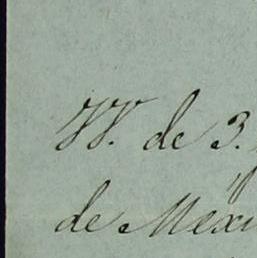 W. de 3.
de Mexi